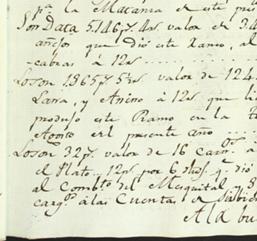 p.ª la Matanza de este
Son Data 5146p.s 4rs valor de 34
añejos que dió este Ramo, al
cabras á 12rs
Yd Son 1865p.s 5rs valor de 124
Lana, y Anino á 12rs que
produjo este Ramo en la
Agosto del presente año
Yd Son 32p.s valor de 16 carg.s á
el Plato 12rs por 6 dió
al Comb.to del Mesquital
carg.s á las Cuentas
A la bu